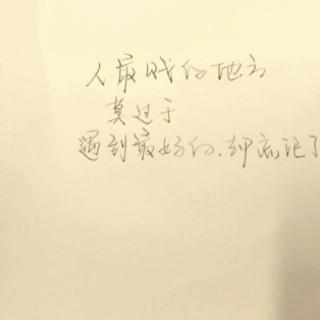 人最贱的地方
莫过于
遇到最好的，却忘记了